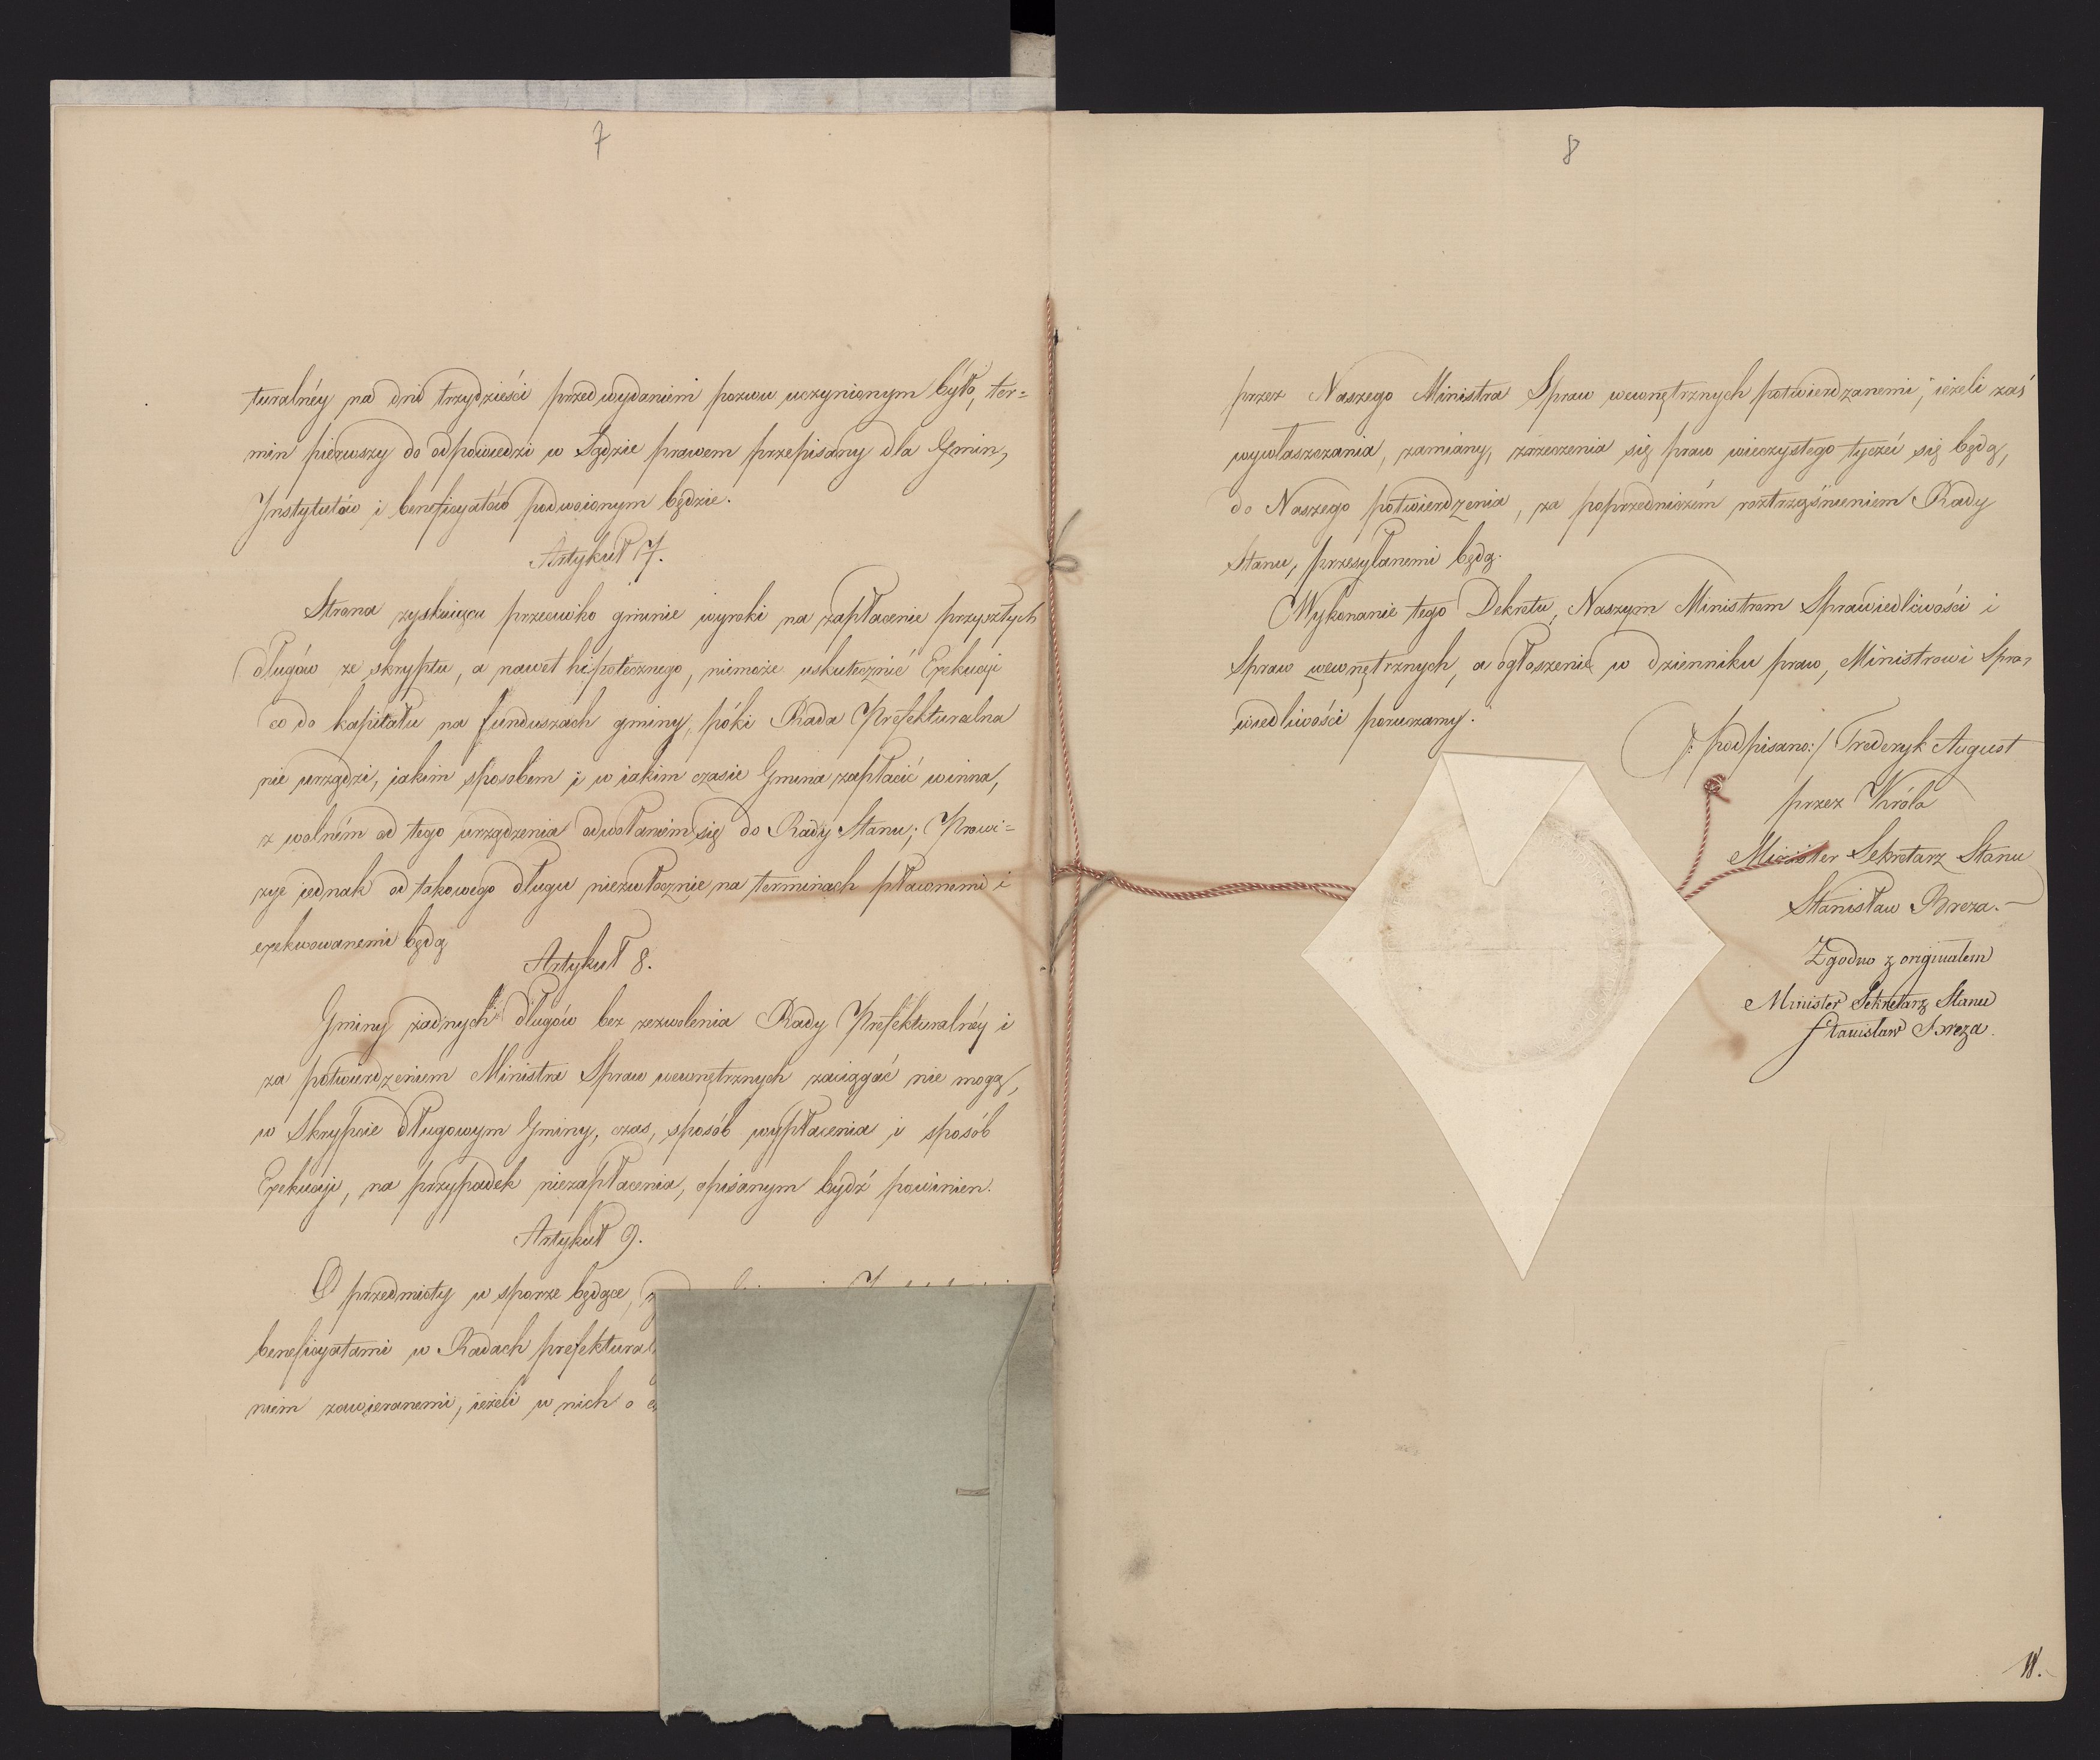 7
turalnéy na dni trzydzieści przed wydaniem pozwu uczynionym było, ter=
min pierwszy do odpowiedzi w Sądzie prawem przepisany dla Gmin,
Instytutów i beneficyatów podwoionym będzie.
Artykuł 7.
Strona zyskuiąca przeciwko gminie wyroki na zapłacenie przyszłych
długów ze skryptu, a nawet hipotecznego, niemoże uskutecznić Exekucyi
co do kapitału na funduszach gminy, póki Rada Prefekturalna
nie urządzi, iakim sposobem i w iakim czasie Gmina zapłacić winna,
z wolném od tego urządzenia odwołaniem się do Rady Stanu; Prowi=
zye iednak od takowego długu niezwłocznie na terminach płaconemi i
exekwowanemi będą
Artykuł 8.
Gminy żadnych długów bez zezwolenia Rady Prefekturalnéy i
za potwierdzeniem Ministra Spraw wewnętrznych zaciągać nie mogą,
w Skrypcie długowym Gminy, czas, sposób wypłacenia i sposób
Exekucyi, na przypadek niezapłacenia, opisanym bydź powinien.
Artykuł 9.
O przedmioty w sporze będące,
beneficyatami w Radach
niem zawieranemi, ieżeli w nich o
8
przez Naszego Ministra Spraw wewnętrznych potwierdzanemi; ieżeli zaś
wywłaszczania, zamiany, zrzeczenia się praw wieczystego tyczéć się będą,
do Naszego potwierdzenia, za poprzedniczém roztrząśnieniem Rady
Stanu, przesyłanemi będą.
Wykonanie tego Dekretu, Naszym Ministrom Sprawiedliwości i
Spraw wewnętrznych, a ogłoszenie w dzienniku praw, Ministrowi Spra=
wiedliwości poruczamy.
/: podpisano:/ Frederyk August
przez Króla
Minister Sekretarz Stanu
Stanisław Breza.
Zgodno z originałem
Minister Sekretarz Stanu
Stanisław Breza.